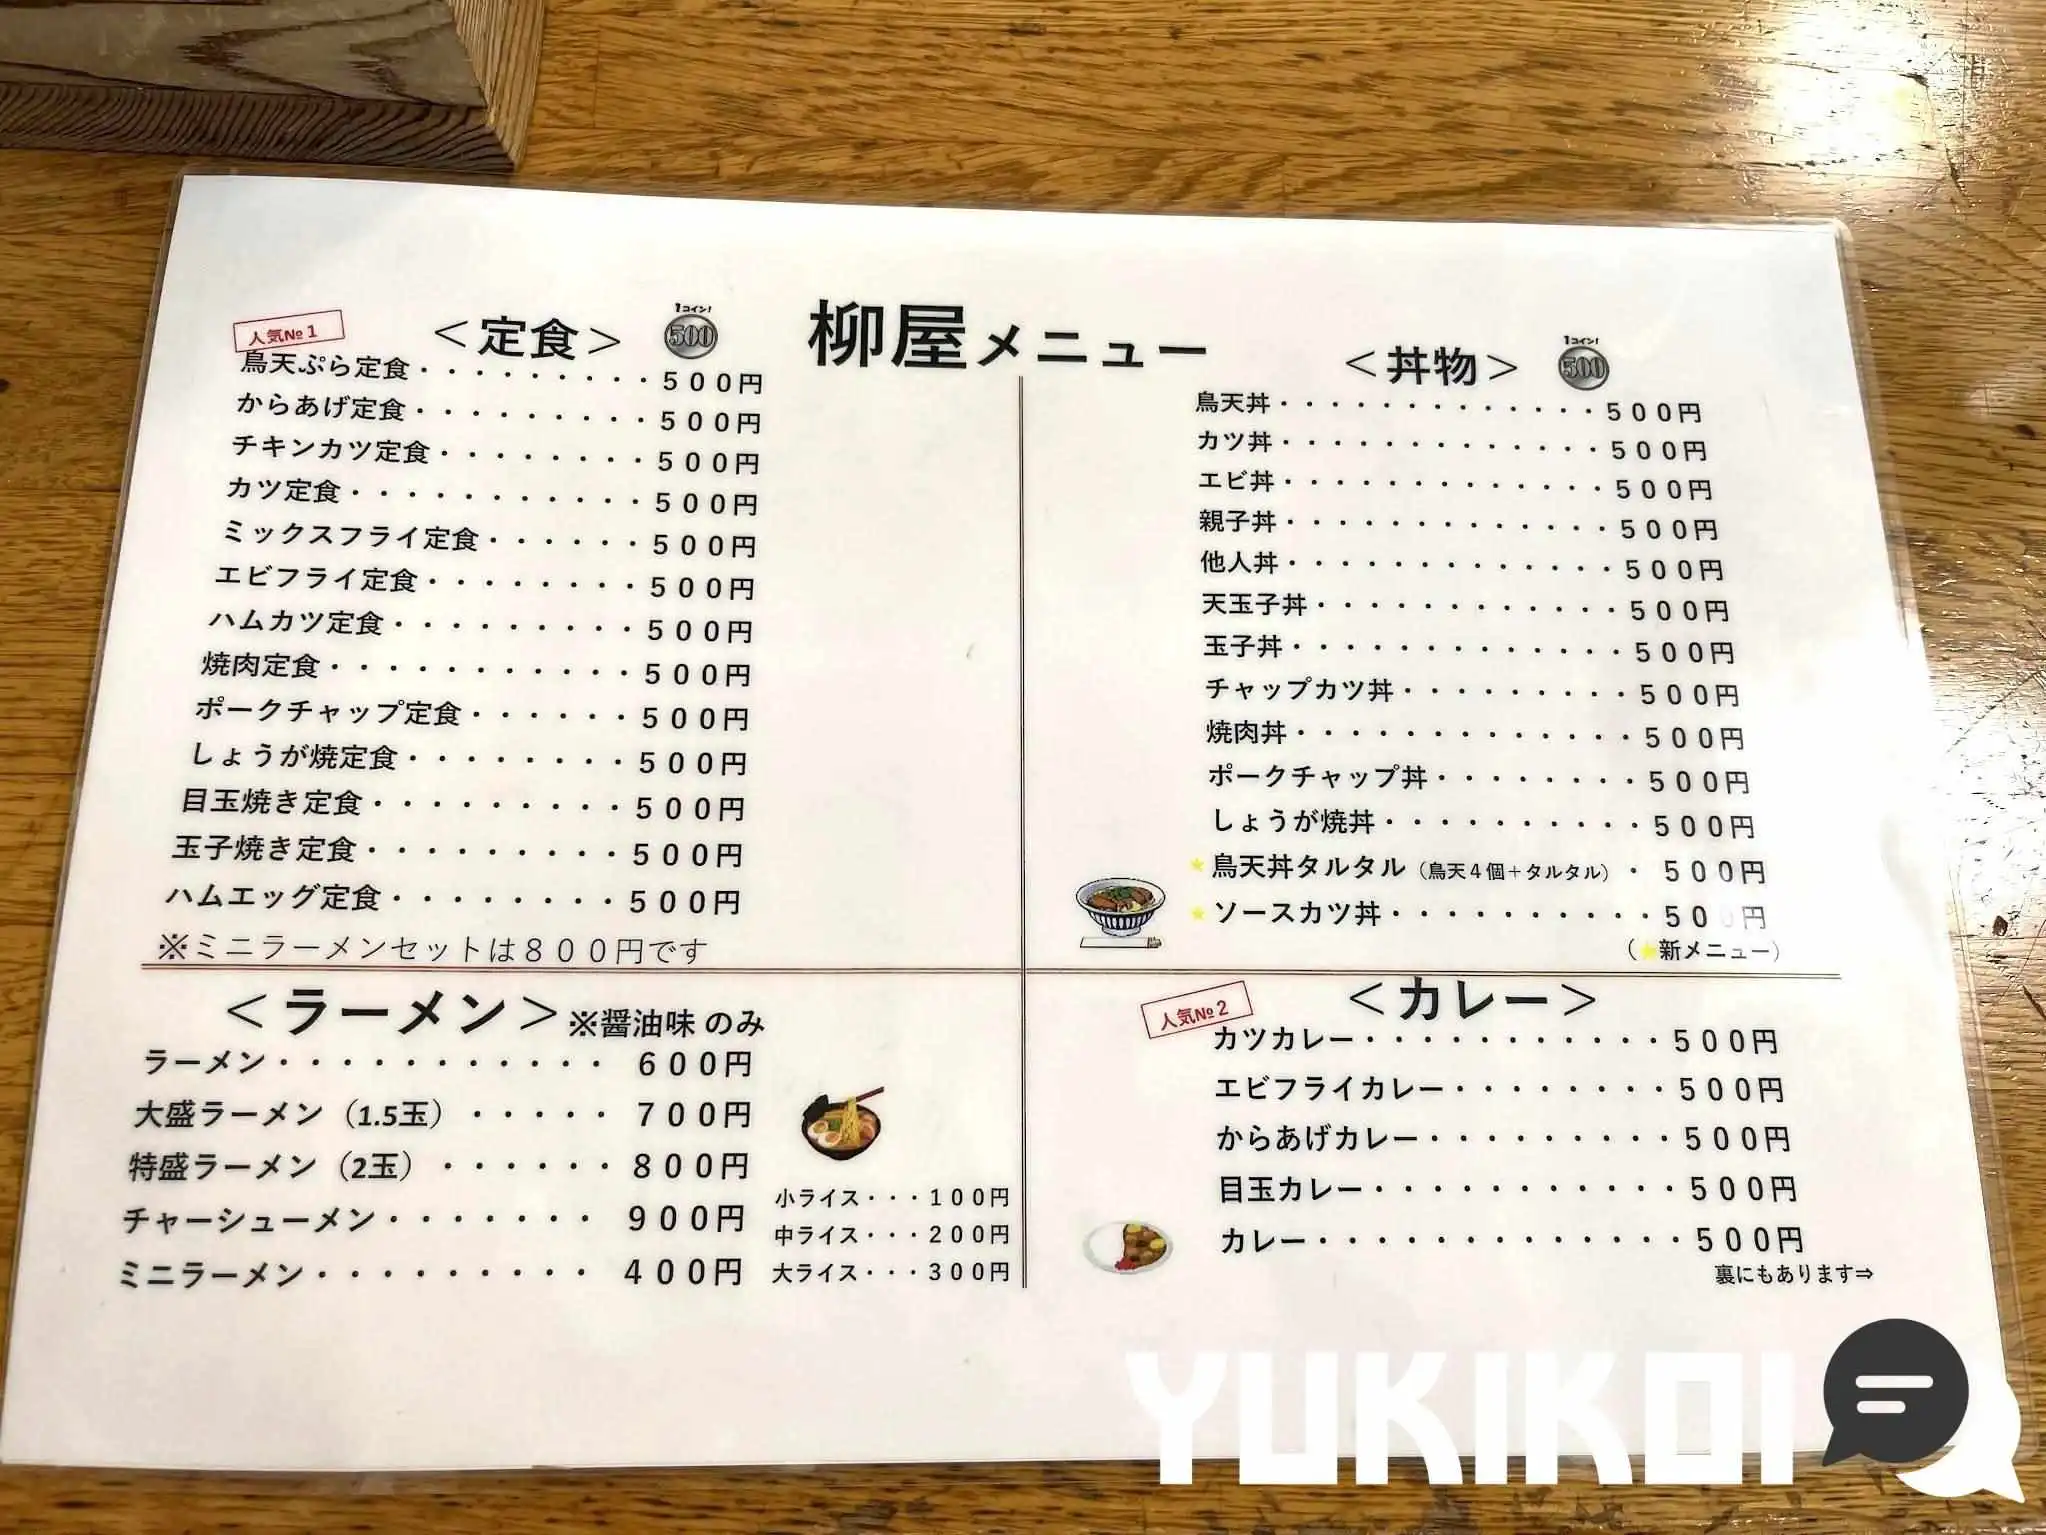 柳屋メニュー
人気№1
＜定食＞
1コイン!
500
鳥天ぷら定食・・・・・・・・・500円
からあげ定食・・・・・・・・・500円
チキンカツ定食・・・・・・・・500円
カツ定食・・・・・・・・・・・500円
ミックスフライ定食・・・・・・500円
エビフライ定食・・・・・・・・500円
ハムカツ定食・・・・・・・・・500円
焼肉定食・・・・・・・・・・・500円
ポークチャップ定食・・・・・・500円
しょうが焼定食・・・・・・・・500円
目玉焼き定食・・・・・・・・・500円
玉子焼き定食・・・・・・・・・500円
ハムエッグ定食・・・・・・・・500円
※ミニラーメンセットは800円です
＜丼物＞
1コイン!
500
鳥天丼・・・・・・・・・・・・・500円
カツ丼・・・・・・・・・・・・・500円
エビ丼・・・・・・・・・・・・・500円
親子丼・・・・・・・・・・・・・500円
他人丼・・・・・・・・・・・・・500円
天玉子丼・・・・・・・・・・・・500円
玉子丼・・・・・・・・・・・・・500円
チャップカツ丼・・・・・・・・・500円
焼肉丼・・・・・・・・・・・・・500円
ポークチャップ丼・・・・・・・・500円
しょうが焼丼・・・・・・・・・・500円
★鳥天丼タルタル（鳥天4個＋タルタル）・500円
★ソースカツ丼・・・・・・・・・・500円
（★新メニュー）
＜ラーメン＞※醤油味のみ
ラーメン・・・・・・・・・・・600円
大盛ラーメン（1.5玉）・・・・・700円
特盛ラーメン（2玉）・・・・・・800円
チャーシューメン・・・・・・・900円
ミニラーメン・・・・・・・・・400円
小ライス・・・100円
中ライス・・・200円
大ライス・・・300円
人気№2
＜カレー＞
カツカレー・・・・・・・・・・・500円
エビフライカレー・・・・・・・・500円
からあげカレー・・・・・・・・・500円
目玉カレー・・・・・・・・・・・500円
カレー・・・・・・・・・・・・・500円
裏にもあります⇒
YUKIKOI